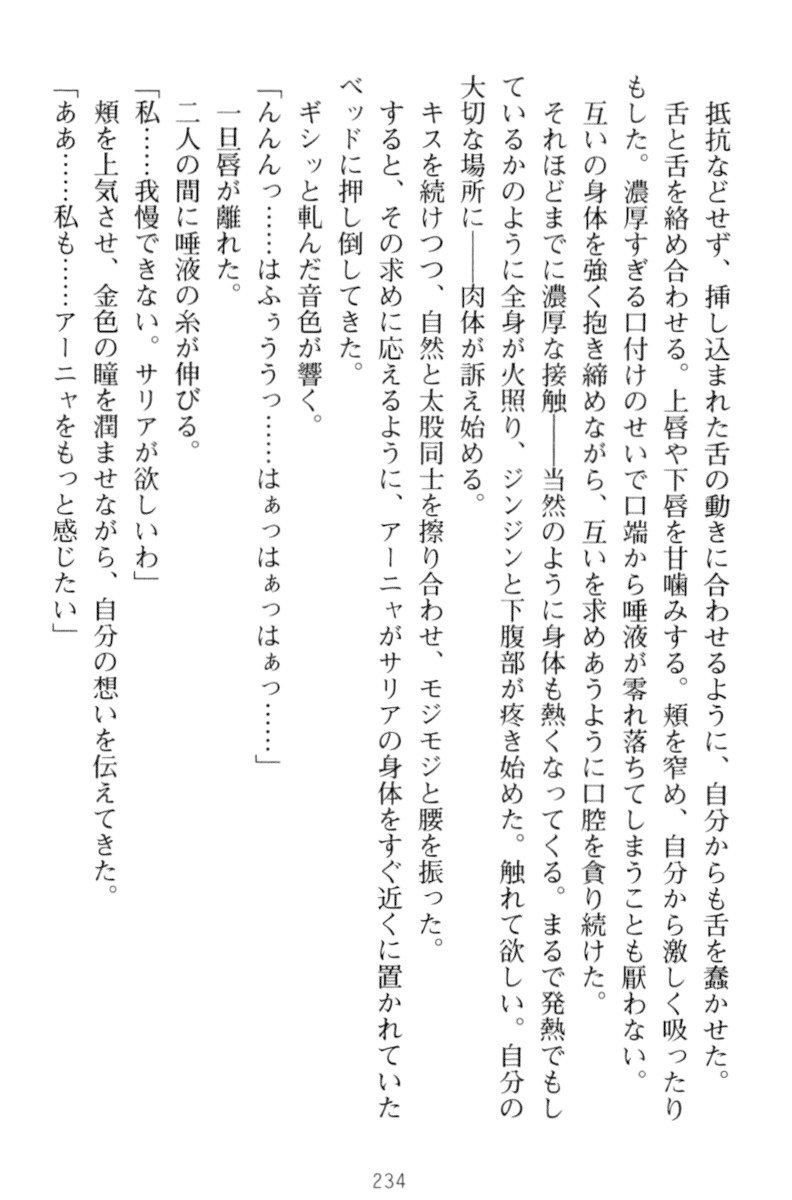 抵抗などせず、挿し込まれた舌の動きに合わせるように、自分からも舌を蠢かせた。
舌と舌を絡め合わせる。上唇や下唇を甘噛みする。頬を窄め、自分から激しく吸ったり
もした。濃厚すぎる口付けのせいで口端から唾液が零れ落ちてしまうことも厭わない。
互いの身体を強く抱き締めながら、互いを求めあうように口腔を貪り続けた。
それほどまでに濃厚な接触――当然のように身体も熱くなってくる。まるで発熱でもし
ているかのように全身が火照り、ジンジンと下腹部が疼き始めた。触れて欲しい。自分の
大切な場所に――肉体が訴え始める。
キスを続けつつ、自然と太股同士を擦り合わせ、モジモジと腰を振った。
すると、その求めに応えるように、アーニャがサリアの身体をすぐ近くに置かれていた
ベッドに押し倒してきた。
ギシッと軋んだ音色が響く。
「んんんっ……はふぅううっ……はぁっはぁっはぁっ……」
一旦唇が離れた。
二人の間に唾液の糸が伸びる。
「私……我慢できない。サリアが欲しいわ」
頬を上気させ、金色の瞳を潤ませながら、自分の想いを伝えてきた。
「ああ……私も……アーニャをもっと感じたい」
234